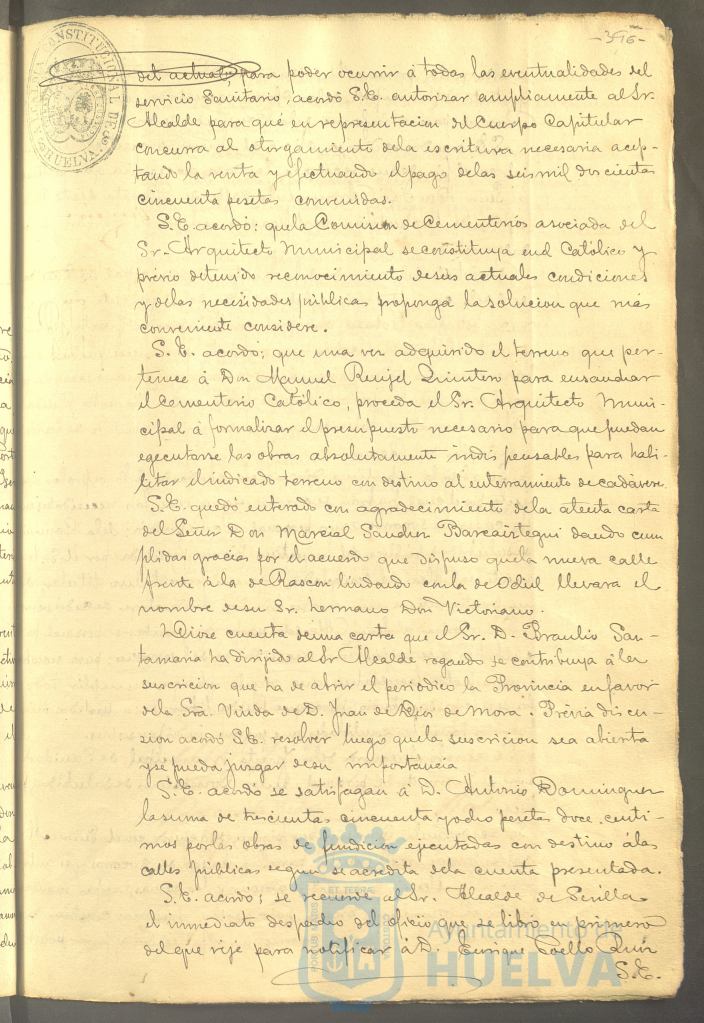 -396-
ALCALDIA CONSTITUCIONAL DE HUELVA
del actual, para poder ocurrir á todas las eventualidades del
servicio Sanitario, acordó S.E. autorizar ampliamente al Sr.
Alcalde para que en representacion del Cuerpo Capitular
concurra al otorgamiento dela escritura necesaria acep-
tando la venta y efectuando el pago delas seis mil doscientas
cincuenta pesetas convenidas.
S.E. acordó: que la Comision de Cementerios asociada del
Sr. Arquitecto Municipal se constituya en el Católico y
prévio detenido reconocimiento de sus actuales condiciones
y delas necesidades públicas proponga la solucion que más
conveniente considere.
S.E. acordó: que una vez adquirido el terreno que per-
tenece á Don Manuel Quintero para ensanchar
el Cementerio Católico, proceda el Sr. Arquitecto Muni-
cipal á formalizar el presupuesto necesario para que puedan
egecutarse las obras absolutamente indispensables para habi-
litar el indicado terreno con destino al enterramiento de cadáveres.
S.E. quedó enterado con agradecimiento dela atenta carta
del Señor Don Marcial Sanchez Barcaiztegui dando cum
plidas gracias por el acuerdo que dispuso que la nueva calle
frente á la de Rascon lindando con la de Odiel llevara el
nombre de su Sr. hermano Don Victoriano.
Dióse cuenta de una carta que el Sr. D. Braulio San-
tamaria ha dirijido al Sr Alcalde rogando se contribuya á la
suscricion que ha de abrir el periódico la Provincia en favor
dela Sra. Viuda de D. Juan de Dios de Mora. Prévia discu-
sion acordó S.E. resolver luego que la suscricion sea abierta
y se pueda juzgar de su importancia
S.E. acordó se satisfagan á D. Antonio Dominguez
la suma de trescientas cincuenta y ocho pesetas doce centi-
mos por las obras de fundicion ejecutadas con destino á las
calles públicas segun se acredita dela cuenta presentada.
S.E. acordó; se recuerde al Sr. Alcalde de Sevilla
el inmediato despacho del oficio que se libró en primero
del que rije para notificar á D. Enrique Coello Ruiz
S.E.
Ayuntamiento de
HUELVA